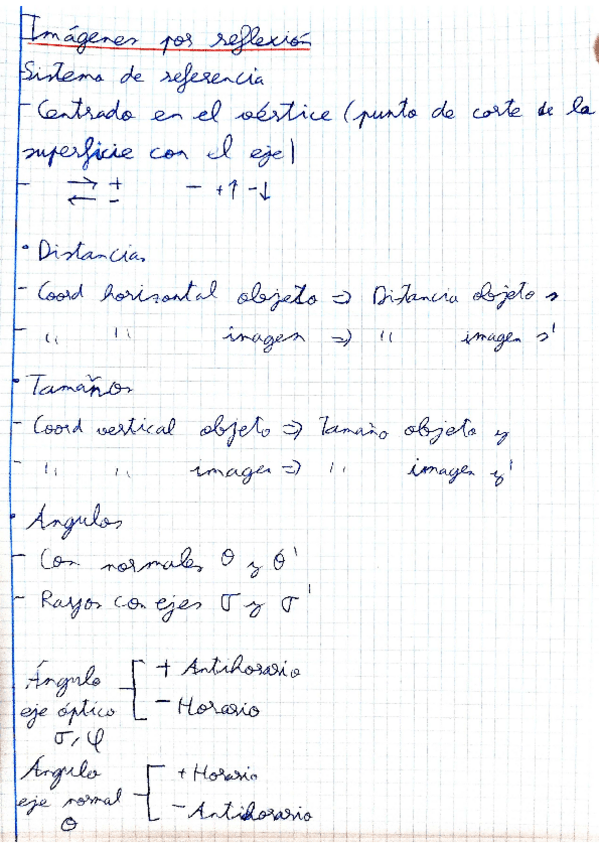 Imágenes por reflexión
Sistema de referencia
- Centrado en el vértice (punto de corte de la
superficie con el eje)
- → + - +↑ -↓
← -
• Distancias
- Coord horizontal objeto => Distancia objeto s
- " " imagen => " imagen s'
• Tamaños
- Coord vertical objeto => Tamaño objeto y
- " " imagen => " imagen y'
• Ángulos
- Con normales θ y θ'
- Rayos con ejes σ y σ'
Ángulo + Antihorario
eje óptico - Horario
σ, φ
Ángulo + Horario
eje normal - Antihorario
θ